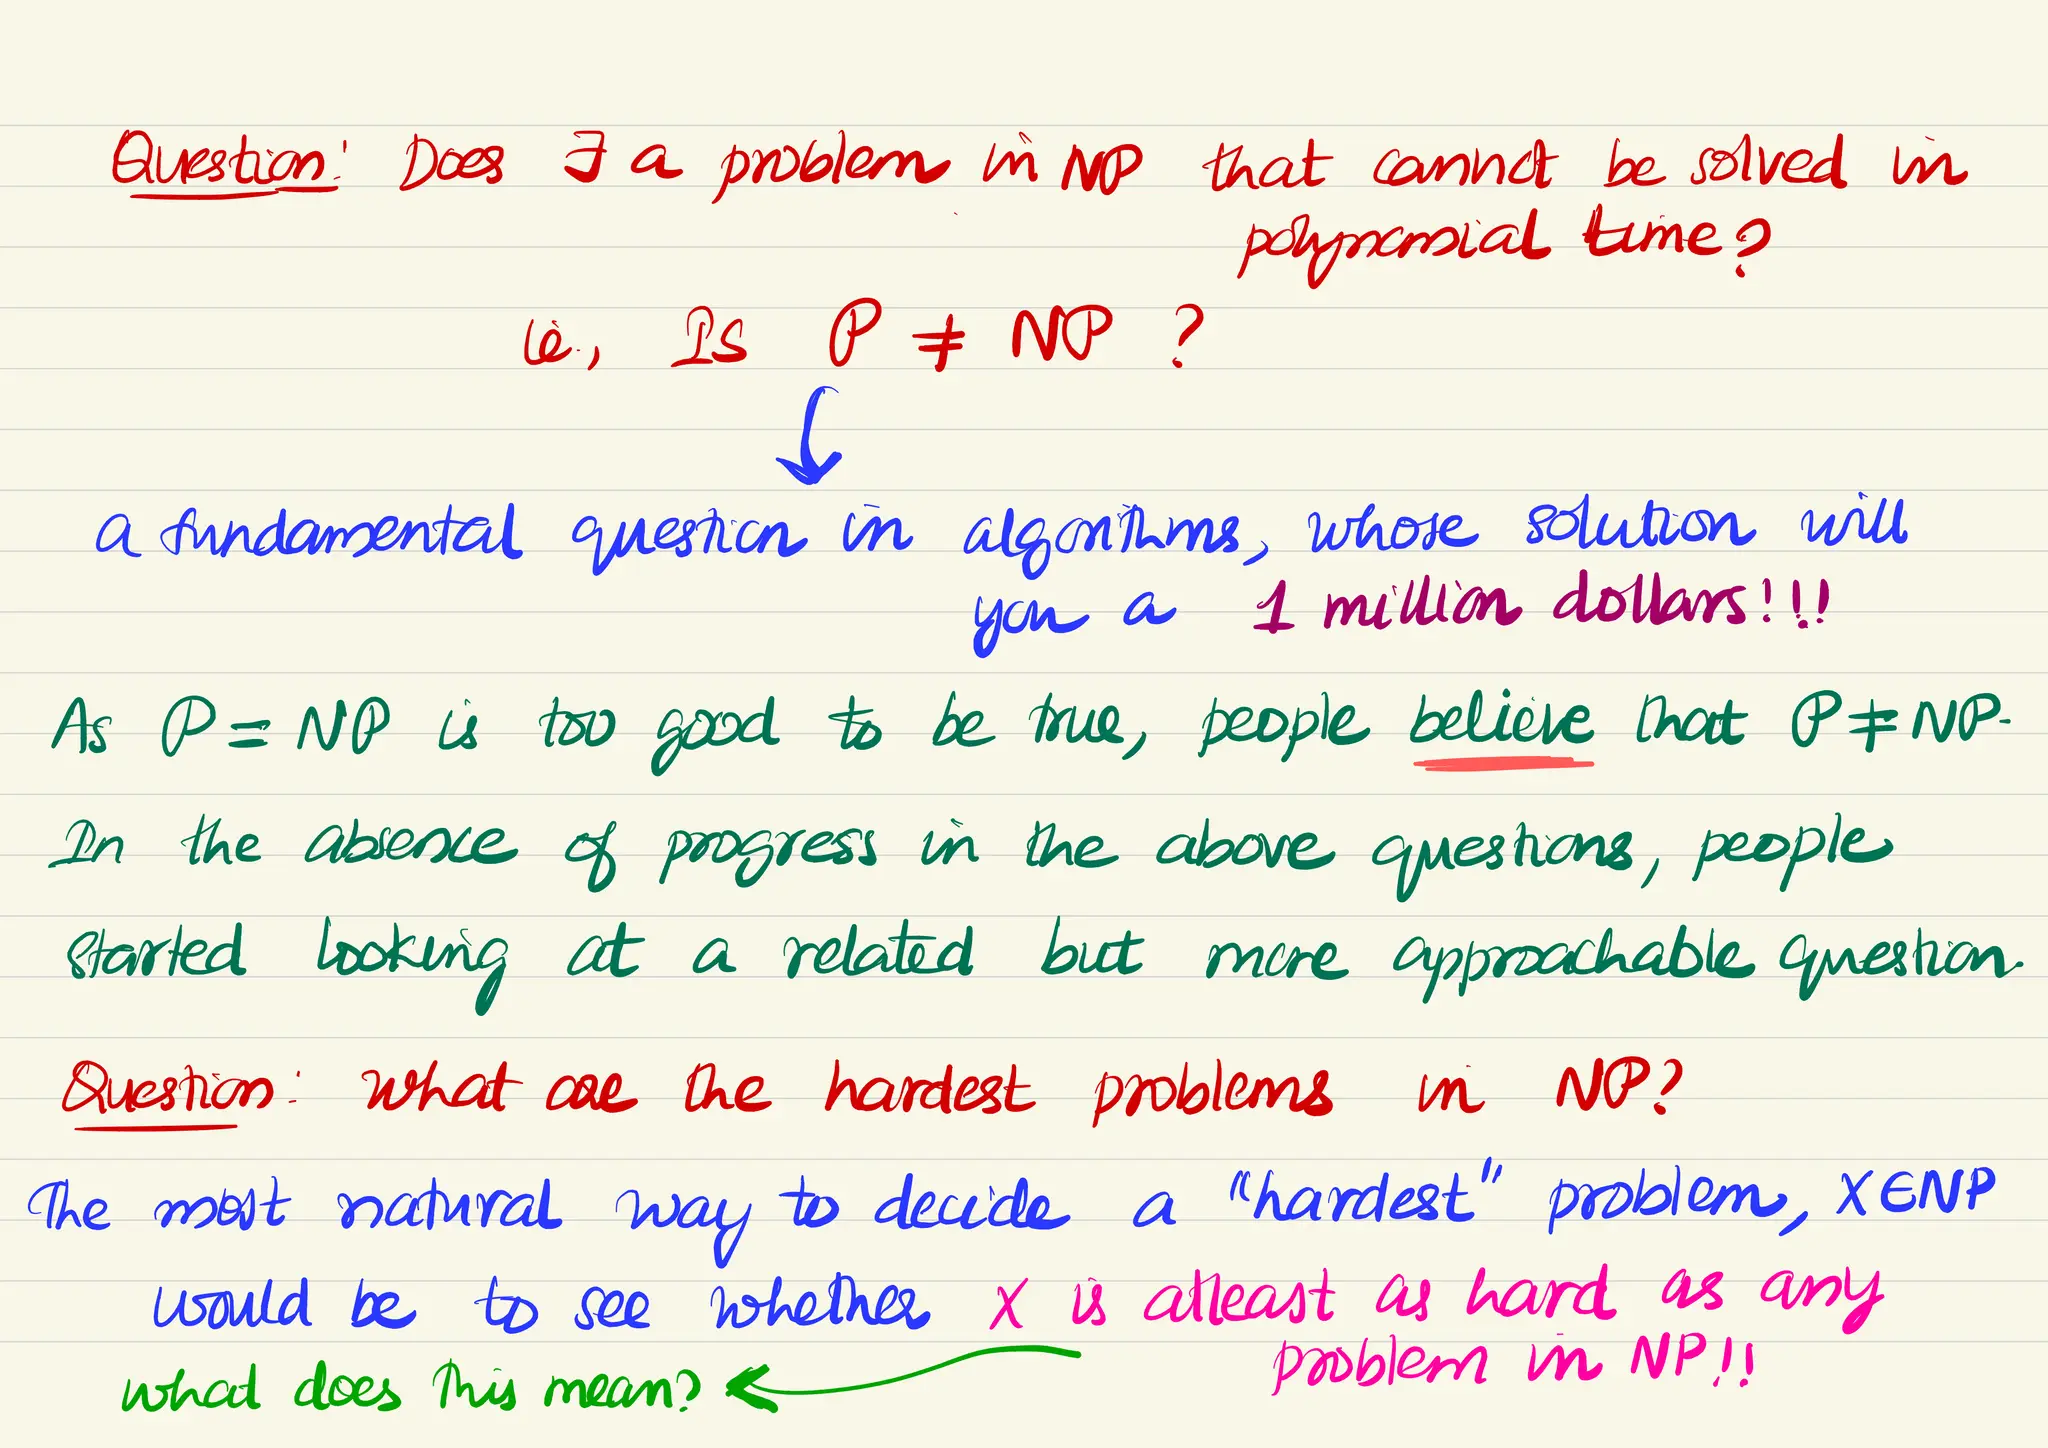 Question: Does ∃ a problem in NP that cannot be solved in
polynomial time?
i.e., Is P ≠ NP ?
a fundamental question in algorithms, whose solution will
you a 1 million dollars!!!
As P = NP is too good to be true, people believe that P ≠ NP.
In the absence of progress in the above questions, people
started looking at a related but more approachable question.
Question: What are the hardest problems in NP?
The most natural way to decide a "hardest" problem, X ∈ NP
would be to see whether X is atleast as hard as any
problem in NP!!
what does this mean?